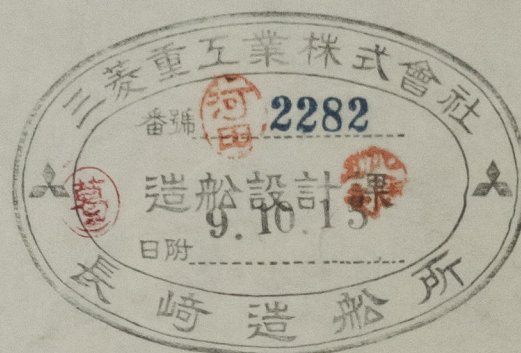 三菱重工業株式會社
番號 2282
河田
造船設計課
9.10.15
日附
長崎造船所